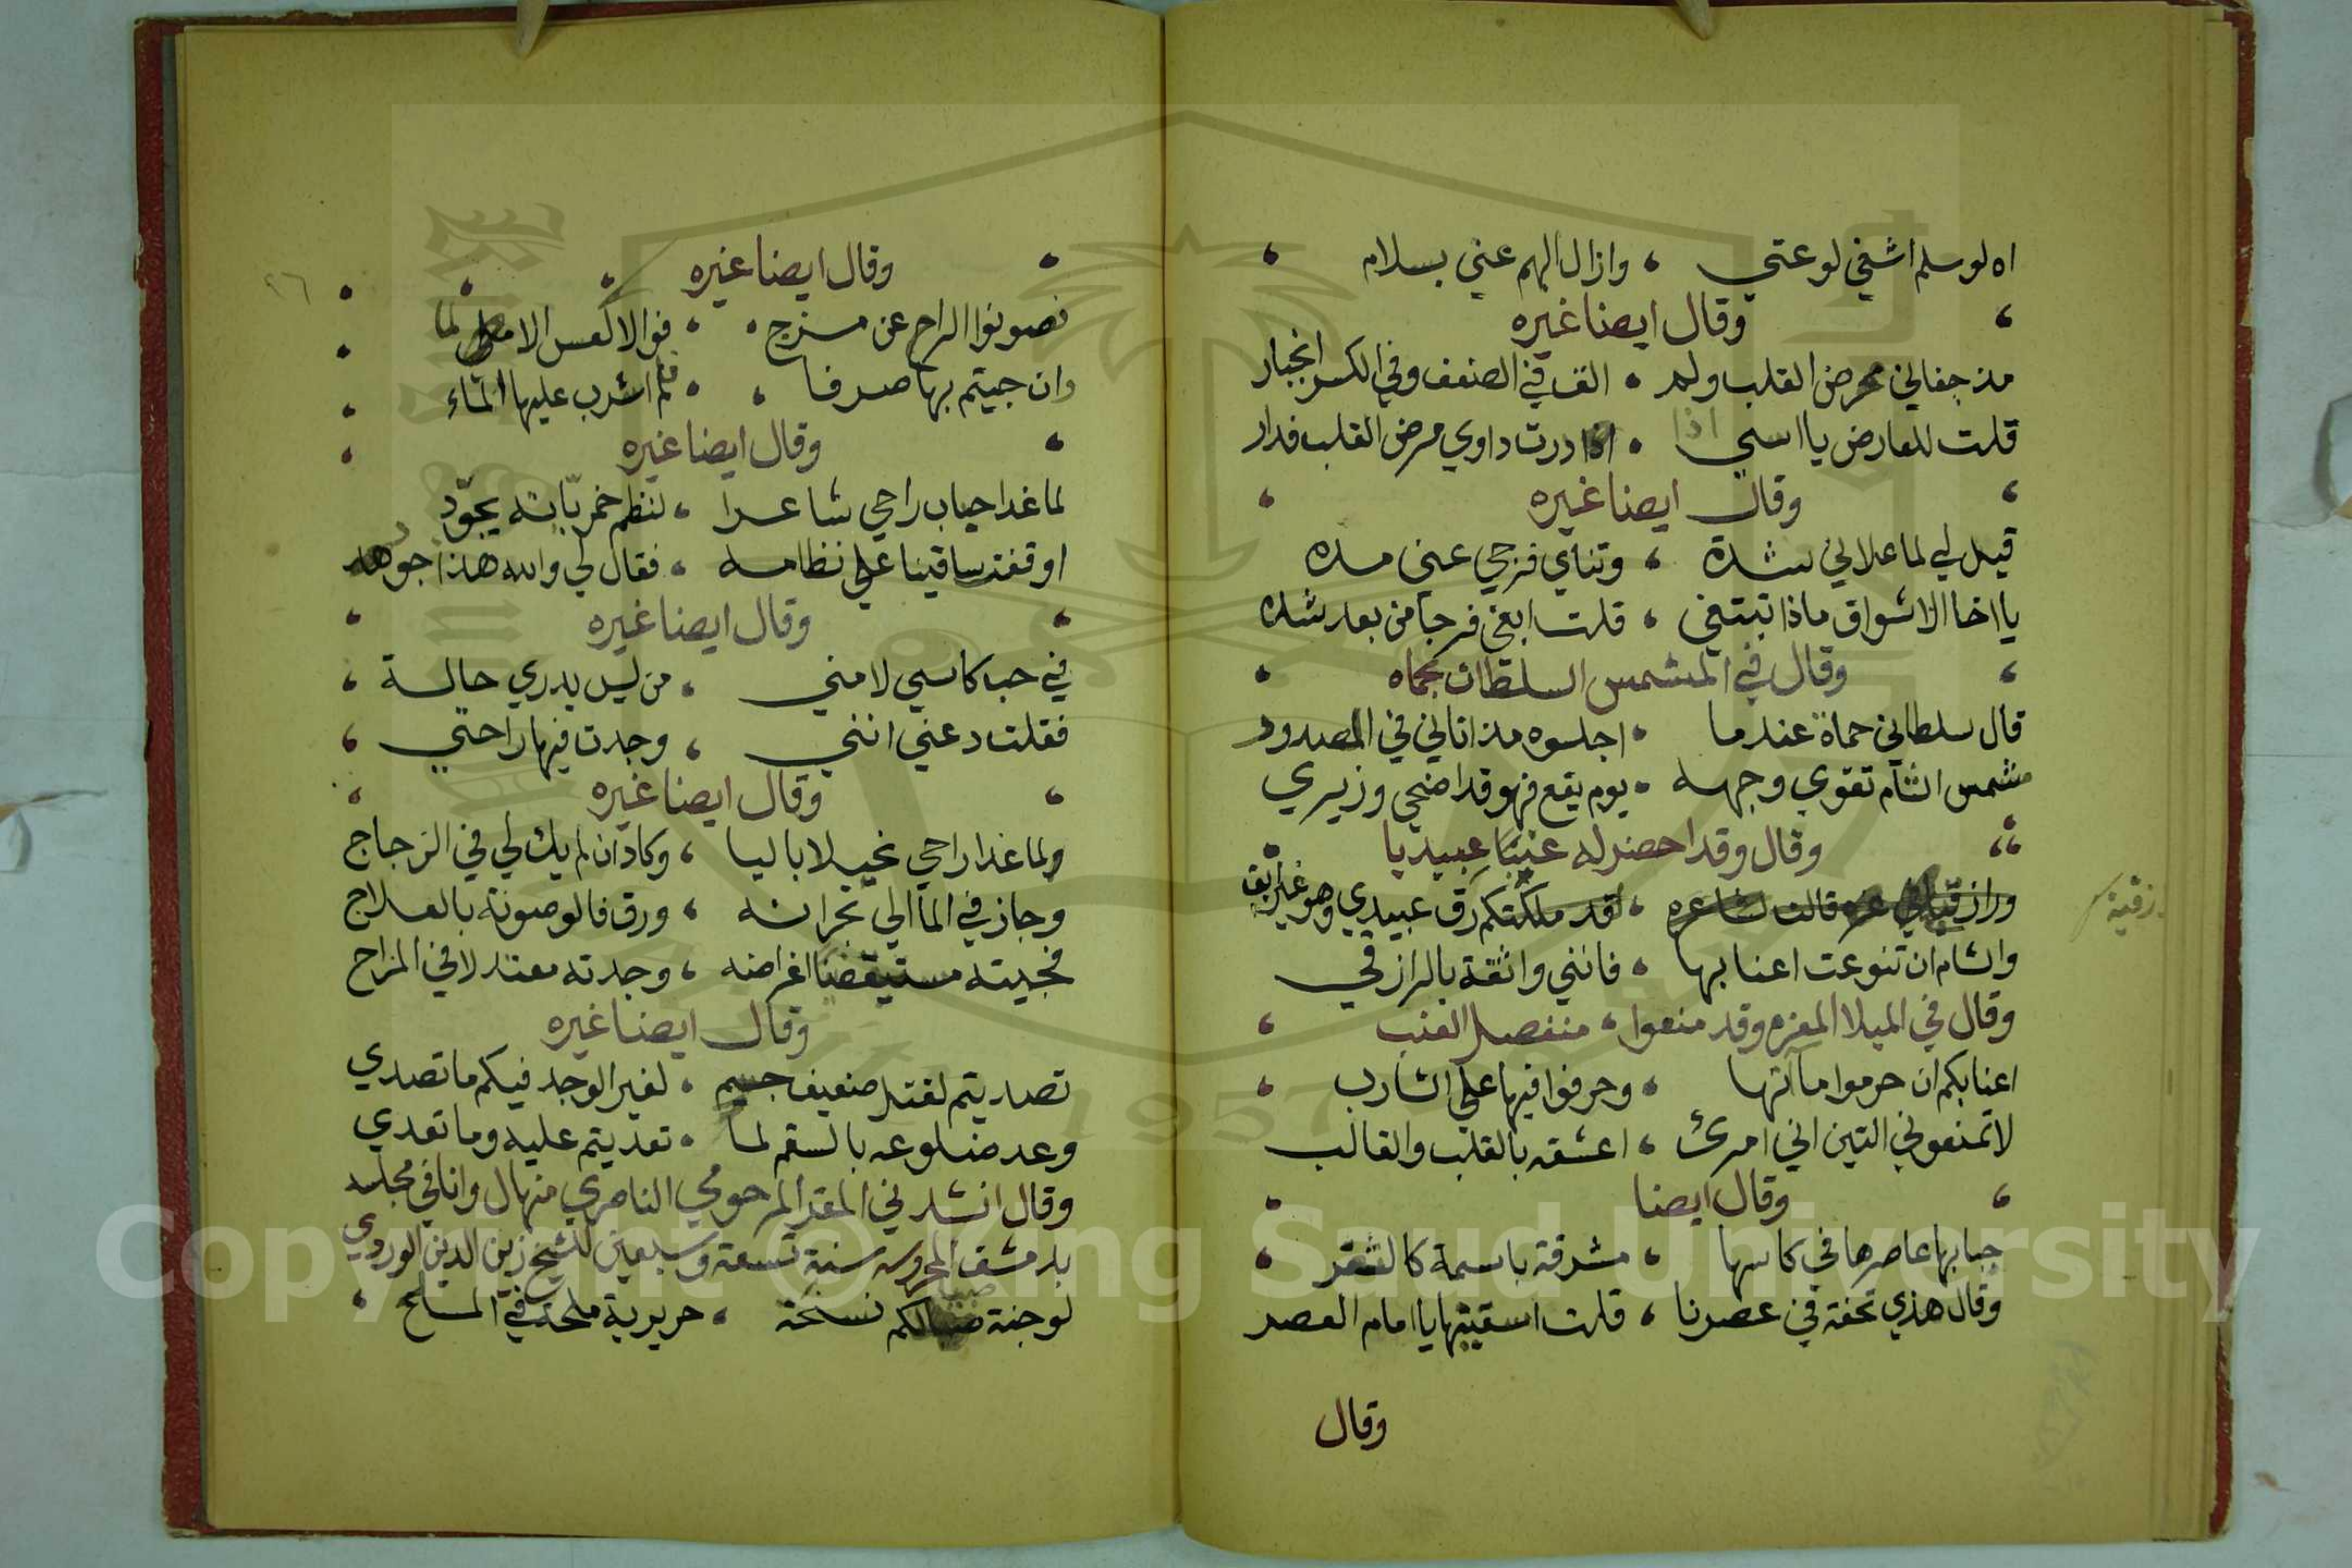 اه لو سلم اشفي لوعتي ، وازال الهم عني بسلام
وقال ايضا غيره
مذ جفاني ممرض القلب ولم ، الق في الضعف وفي الكسر انجبار
قلت للعارض يا اسي اذا ، درت داوي مرض القلب فدار
وقال ايضا غيره
قيل لي لما علاني شدة ، وتناي فرجي عني مده
يا اخا الاشواق ماذا تبتغي ، قلت ابغي فرجا من بعد شده
وقال في المشمس السلطان بحماه
قال سلطاني حماة عندما ، اجلسوه مذ اتاني في الصدور
مشمس الشام تقوي وجهه ، يوم يقع فهو قد اضحي وزيري
وقال وقد احضر له عنبا عبيديا
قالت لشاعره ، لقد ملكتكم رق عبيدي وهو غير ابق
رزقية
والشام ان تنوعت اعنابها ، فانني واثقة بالرازقي
وقال في الميلا المعزم وقد منعوا ، منفصل العنب
اعنابكم ان حرموا ماآنها ، وحرفوا فيها علي الشارب
لا تمنعوني التين اني امرئ ، اعشقه بالقلب والقالب
وقال ايضا
حبا بها عاصرها في كاسها ، مشرقة باسمة كالثغر
وقال هذي تحفة في عصرنا ، قلت اسقنيها يا امام العصر
وقال
٢٦
وقال ايضا غيره
تصونوا الراح عن مزج ، فوا الاكعس الاملي لما
وان جيتم بها صرفا ، فلم اشرب عليها الماء
وقال ايضا غيره
لما غدا حباب راحي شاعرا ، لنظم خمرياته يجود
اوقفت ساقينا علي نظامه ، فقال لي والله هذا جوهر
وقال ايضا غيره
في حب كاسي لامني ، من ليس يدري حالة
فقلت دعني انني ، وجدت فيها راحتي
وقال ايضا غيره
ولما غدا راحي نحيلا باليا ، وكاد ان لم يك لي في الزجاج
وجاز في الما الي بحرانه ، ورق فالوصونة بالعلاج
فجيته مستيقضا اغراضه ، وجدته معتدلا في المزاج
وقال ايضا غيره
تصديتم لقتل ضعيف جسيم ، لغير الوجد فيكم ما تصدي
وعد ضلوعه بالسقم لما ، تعديتم عليه وما تعدي
وقال انشدني المقر المرحومي الناصري منهال وانا في مجلسه
بدمشق المحروسه سنة تسعة وسبعين للشيخ زين الدين الوردي
لوجنة صبالكم نسخة ، حريرية ملحة في الملح
Copyright © King Saud University
1957